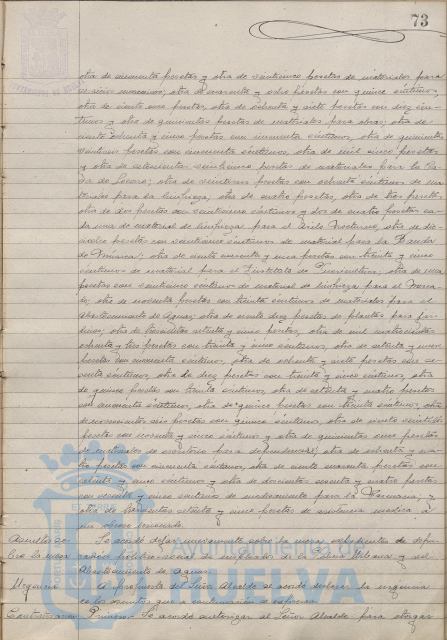 73
otra de cincuenta pesetas y otra de veinticinco pesetas de materiales para
servicios; otra de cuarenta y ocho pesetas con quince céntimos,
otra de ciento once pesetas, otra de ochenta y siete pesetas con diez cén-
timos y otra de quinientas pesetas de materiales para obras; otra de
ciento ochenta y cinco pesetas con cincuenta céntimos, otra de quinientas
veintiuna pesetas con cincuenta céntimos, otra de mil cinco pesetas
y otra de setecientas veinticinco pesetas de materiales para la Ca-
sa de Socorro; otra de veintiuna pesetas con ochenta céntimos de ma-
teriales para la limpieza; otra de cuatro pesetas, otra de tres pesetas,
otra de dos pesetas con veinticinco céntimos y dos de cuatro pesetas ca-
da una de material de limpieza para el Asilo Nocturno; otra de die-
ciocho pesetas con veinticinco céntimos de material para la Banda
de Música; otra de ciento cincuenta y una pesetas con treinta y cinco
céntimos de material para el Instituto de Puericultura; otra de una
peseta con veinticinco céntimos de material de limpieza para el Merca-
do; otra de noventa pesetas con treinta céntimos de materiales para el
abastecimiento de Aguas; otra de ciento diez pesetas de plantas para jar-
dines; otra de trescientas setenta y cinco pesetas, otra de mil cuatrocientas
ochenta y tres pesetas con treinta y cinco céntimos, otra de setenta y una
pesetas con cincuenta céntimos, otra de ochenta y siete pesetas con se-
tenta céntimos, otra de diez pesetas con treinta y cinco céntimos, otra
de quince pesetas con treinta céntimos, otra de setenta y cuatro pesetas
con cincuenta céntimos, otra de quince pesetas con treinta céntimos, otra
de pesetas con quince céntimos, otra de ciento veintidós
pesetas con cincuenta y cinco céntimos y otra de quinientas once pesetas
de materiales de escritorio para dependencias; otra de sesenta y cua-
tro pesetas con cincuenta céntimos, otra de ciento cuarenta pesetas con
setenta y cinco céntimos y otra de doscientas sesenta y cuatro pesetas
con sesenta y cinco céntimos de medicamento para la Farmacia; y
otra de trescientas setenta y cinco pesetas de asistencia médica a
un obrero lesionado.
Asunto so- Se acordó dejar nuevamente sobre la mesa expedientes de depu-
bre la mesa ración político-social de empleados de la Banda y del
Abastecimiento de Aguas.
Urgencia A propuesta del Señor Alcalde se acordó declarar la urgencia
de los asuntos que a continuación se expresan:
Primero.- Se acordó autorizar al Señor Alcalde para otorgar
Ayuntamiento de
HUELVA